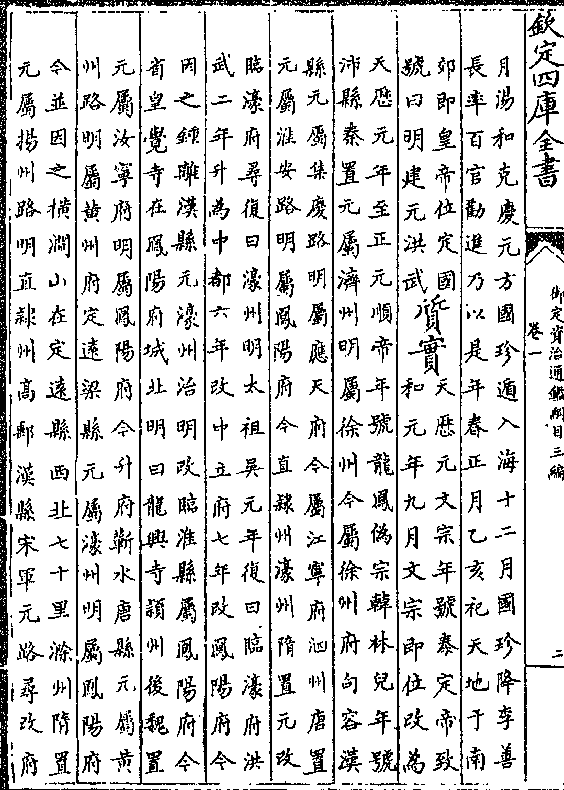 欽定四庫全書
御定資治通鑑綱目三編
卷一
二
月湯和克慶元方國珍遁入海十二月國珍降李善
長率百官勸進乃以是年春正月乙亥祀天地于南
郊即皇帝位定國
號曰明建元洪武
質實
天歷元文宗年號泰定帝致
和元年九月文宗即位改為
天歷元年至正元順帝年號龍鳳偽宗韓林兒年號
沛縣秦置元屬濟州明屬徐州今屬徐州府句容漢
縣元屬集慶路明屬應天府今屬江寧府泗州唐置
元屬淮安路明屬鳳陽府今直隸州濠州隋置元改
臨濠府尋復曰濠州明太祖吳元年復曰臨濠府洪
武二年升為中都六年改中立府七年改鳳陽府今
因之鍾離漢縣元濠州治明改臨淮縣屬鳳陽府今
省皇覺寺在鳳陽府城北明曰龍興寺潁州後魏置
元屬汝寧府明屬鳳陽府今升府蘄水唐縣元屬黃
州路明屬黃州府定遠梁縣元屬濠州明屬鳳陽府
今並因之橫澗山在定遠縣西北七十里滁州隋置
元屬揚州路明直隸州高郵漢縣宋軍元路尋改府